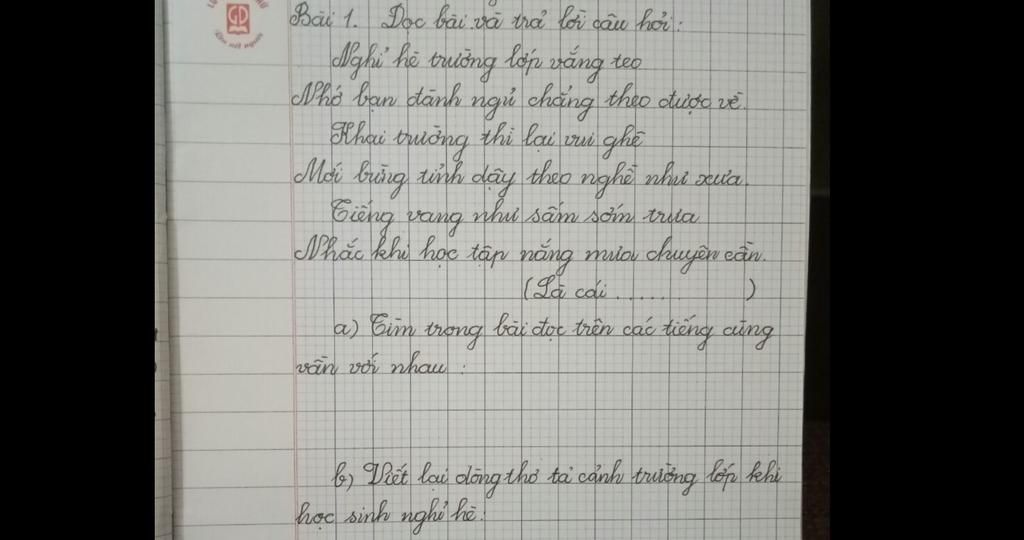 GD
Bài 1. Đọc bài và trả lời câu hỏi:
Nghỉ hè trường lớp vắng teo
Nhớ bạn đành ngủ chẳng theo được về.
Khai trường thì lại vui ghê
Mới bừng tỉnh dậy theo nghề như xưa.
Tiếng vang như sấm sớm trưa
Nhắc khi học tập nắng mưa chuyên cần.
(Là cái ...... )
a) Tìm trong bài đọc trên các tiếng cùng
vần với nhau :
b) Viết lại dòng thơ tả cảnh trường lớp khi
học sinh nghỉ hè: